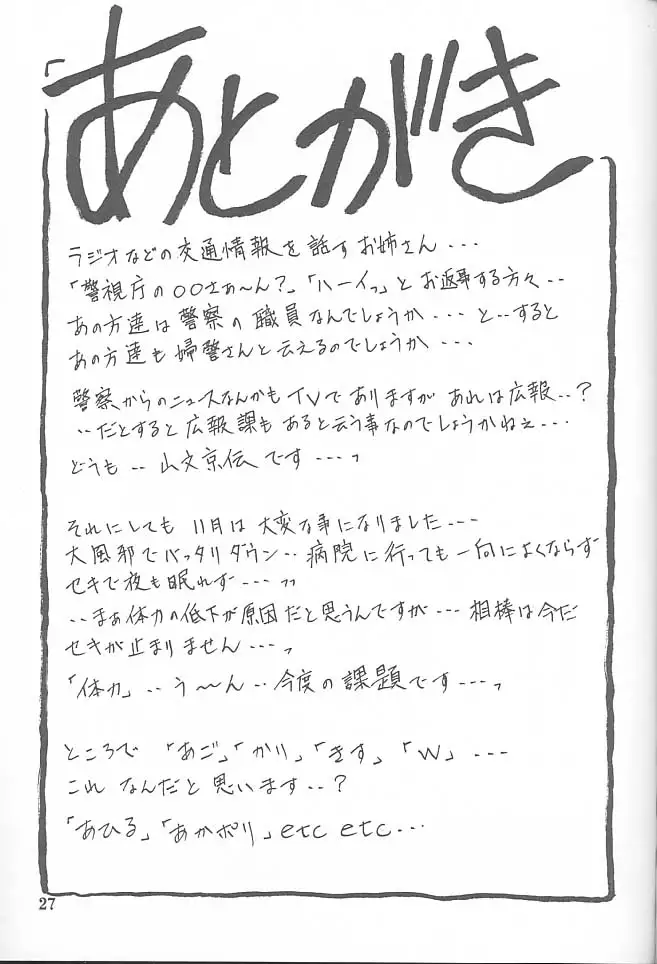 あとがき
ラジオなどの交通情報を話すお姉さん・・・
「警視庁の〇〇さぁ〜ん?」「ハーイっ」とお返事する方々・・
あの方達は警察の職員なんでしょうか・・・と・・すると
あの方達も婦警さんと云えるのでしょうか・・・
警察からのニュースなんかもTVでありますがあれは広報・・?
・・だとすると広報課もあると云う事なのでしょうかねぇ・・・
どうも・・山文京伝です・・・っ
それにしても11月は大変な事になりました・・・
大風邪でバッタリダウン・・病院に行っても一向によくならず
セキで夜も眠れず・・・っっ
・・まぁ体力の低下が原因だと思うんですが・・・相棒は今だ
セキが止まりません・・・っ
「体力」・・う〜〜ん・・今度の課題です・・・っ
ところで「あご」「かり」「きす」「W」・・・
これなんだと思います・・?
「あひる」「あかポリ」etc etc・・・
27